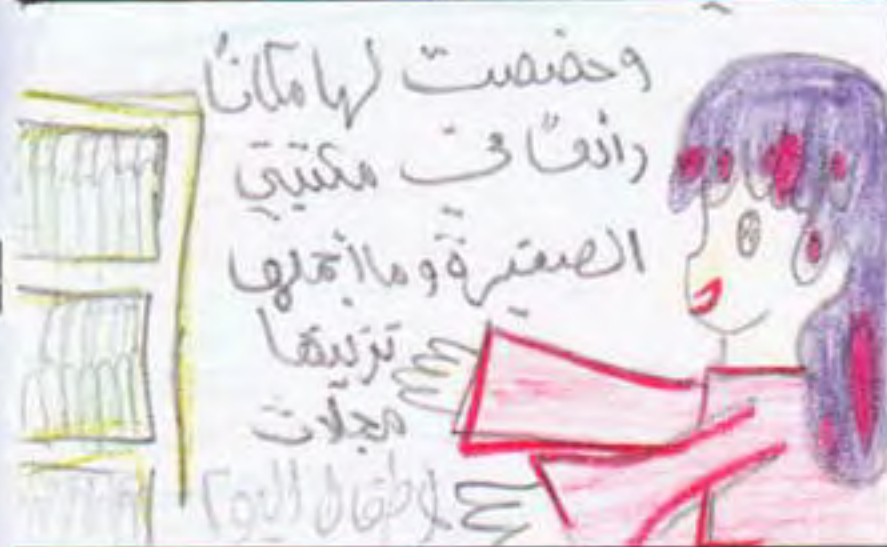 وخصصت لها مكاناً
رائعاً في مكتبتي
الصغيرة وما أجملها
تزينها
مجلات
أطفال اليوم